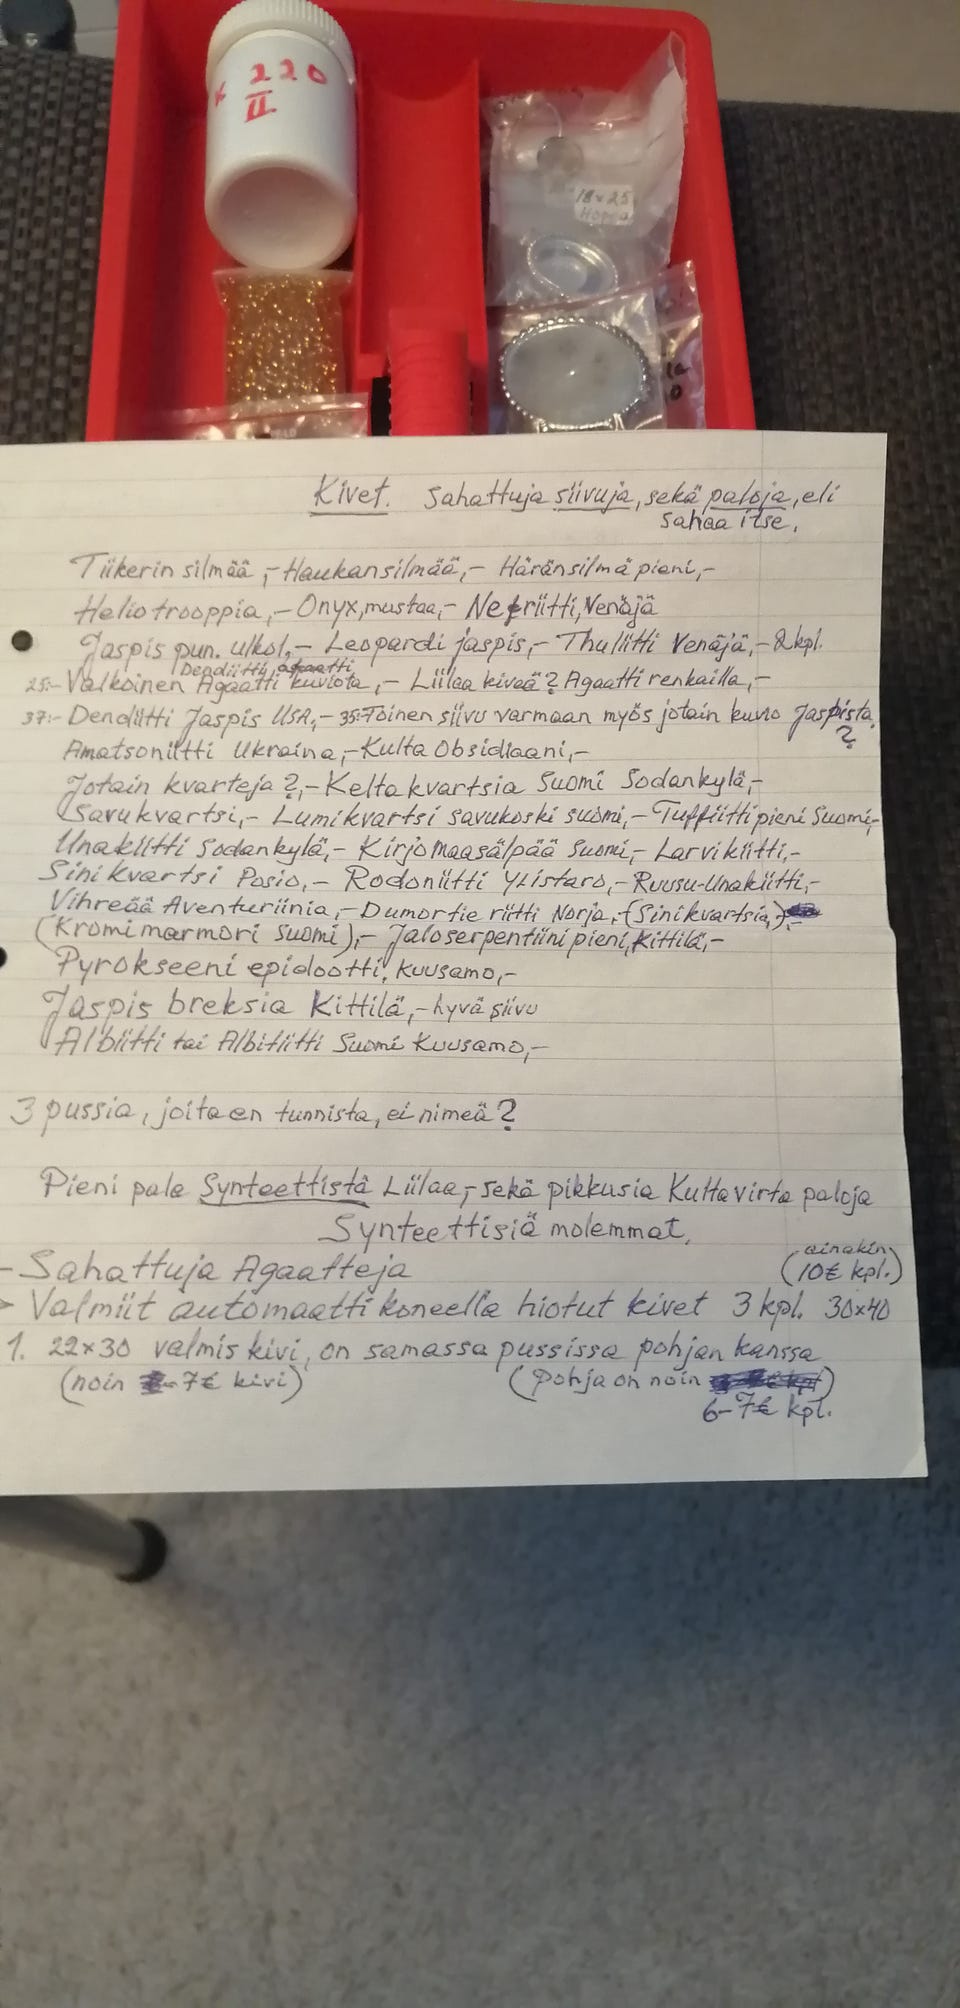 220
II
18x25
Hopea
Kivet. Sahattuja siivuja, sekä paloja, eli
sahaa itse.
Tiikerin silmää,- Haukansilmää,- Häränsilmä pieni,-
Heliotrooppia,- Onyx, mustaa,- Nefriitti, Venäjä
Jaspis pun. ulkol,- Leopardi jaspis,- Thuliitti Venäjä,- 2 kpl.
Dendiitti agaatti
25:- Valkoinen Agaatti kuviota,- Liilaa kiveä? Agaatti renkailla,-
37:- Dendiitti Jaspis USA,- 35:- Toinen siivu varmaan myös jotain kuvio Jaspista
?
Amatsoniitti Ukraina,- Kulta Obsidiaani,-
Jotain kvarteja?,- Keltakvartsia Suomi Sodankylä,-
Savukvartsi,- Lumikvartsi Savukoski Suomi,- Tuffiitti pieni Suomi,-
Unakiitti Sodankylä,- Kirjomaasälpää Suomi,- Larvikiitti,-
Sinikvartsi Posio,- Rodoniitti Ylistaro,- Ruusu-Unakiitti,-
Vihreää Aventuriinia,- Dumortieriitti Norja,- (Sinikvartsia,)-
(Kromimarmori Suomi),- Jaloserpentiini pieni, Kittilä,-
Pyrokseeni epidootti, Kuusamo,-
Jaspis breksia Kittilä,- hyvä siivu
Albiitti tai Albitiitti Suomi Kuusamo,-
3 pussia, joita en tunnista, ei nimeä?
Pieni pala Synteettistä Liilaa,- sekä pikkusia Kultavirta paloja
Synteettisiä molemmat.
- Sahattuja Agaatteja (ainakin
10€ kpl.)
Valmiit automaatti koneella hiotut kivet 3 kpl. 30x40
1. 22x30 valmis kivi, on samassa pussissa pohjan kanssa
(noin 7€ kivi) (pohja on noin )
6-7€ kpl.